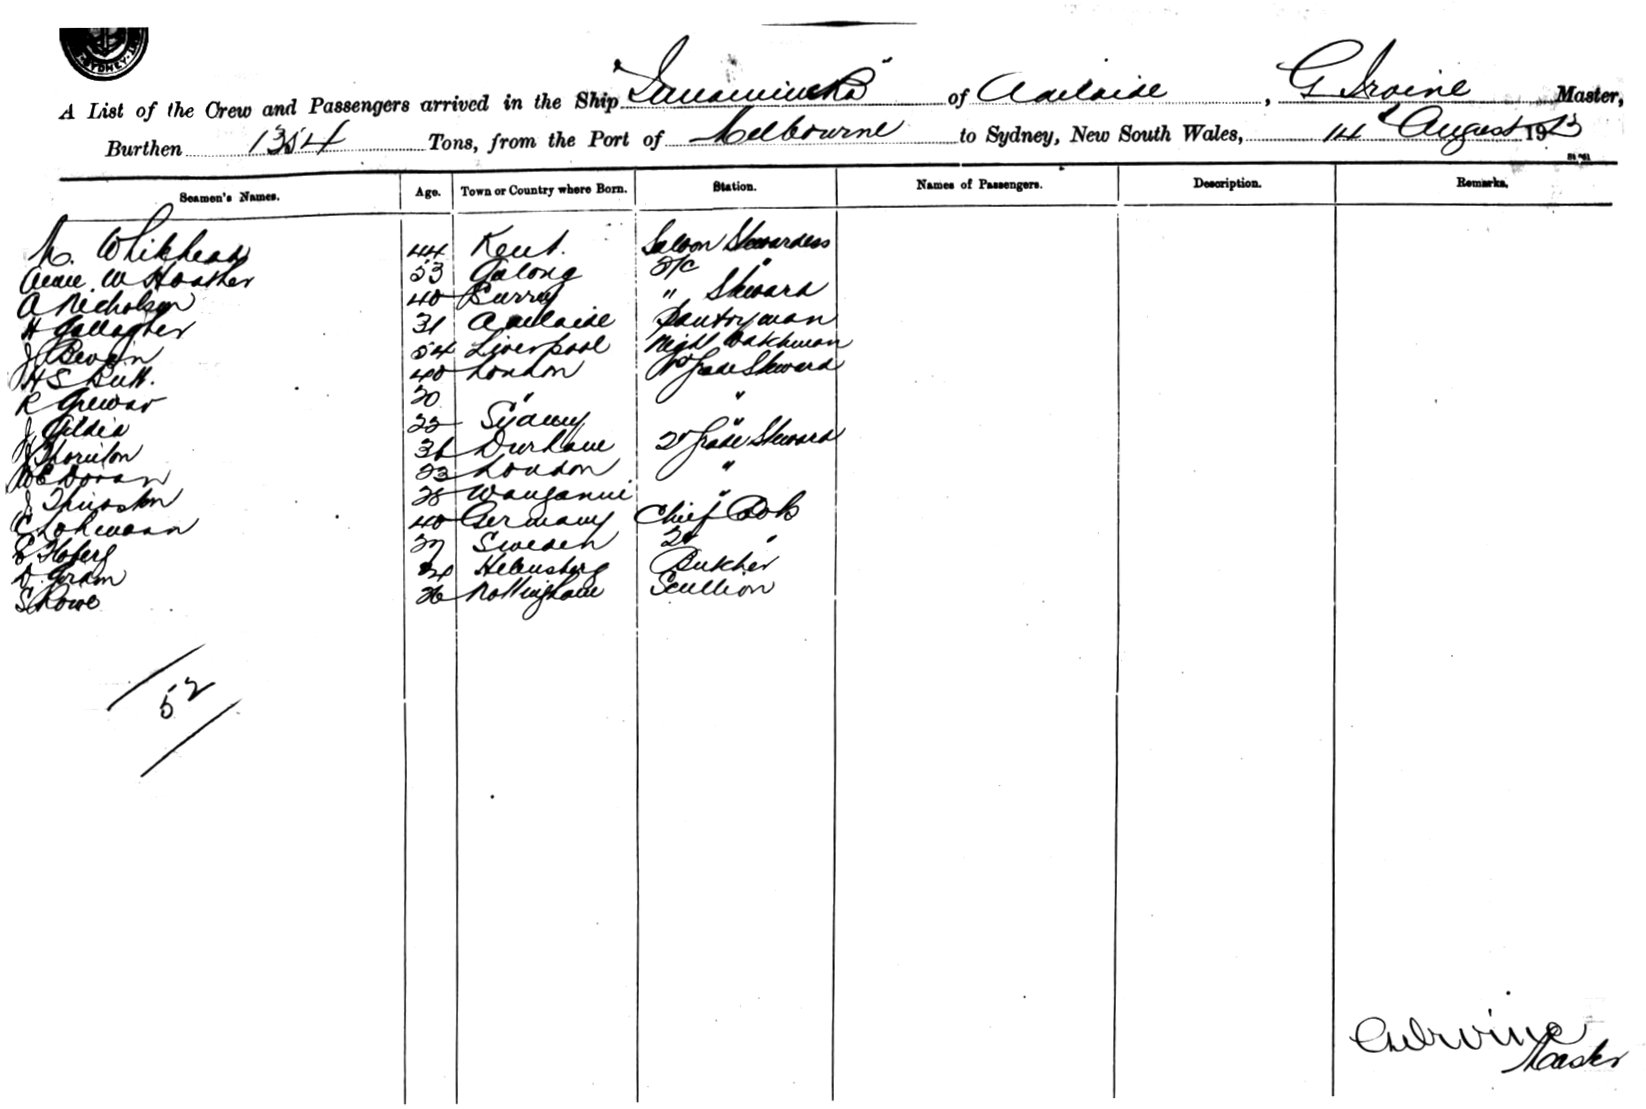 SYDNEY
A List of the Crew and Passengers arrived in the Ship "Innamincka" of Adelaide, G Irvine Master,
Burthen 1354 Tons, from the Port of Melbourne to Sydney, New South Wales, 14 August 1913
Seamen's Names. Age. Town or Country where Born. Station. Names of Passengers. Description. Remarks.
M. Whitehead 44 Kent. Saloon Stewardess
Annie W Hoather 53 Geelong 2/c "
A Nicholson 40 Surrey " Steward
H Gallagher 31 Adelaide Pantryman
J Bevan 54 Liverpool Night Watchman
H S Butt. 40 London 1st Grade Steward
R Grewar 30 " "
J Gildea 22 Sydney "
J Thornton 36 Durham 2d Grade Steward
W E Doran 23 London "
J Thurston 28 Wanganui "
C Lohmann 40 Germany Chief Cook
37 Sweden 2d "
D. Gram Helensburg Butcher
S Rowe 26 Nottingham Scullion
52
G Irvine
Master